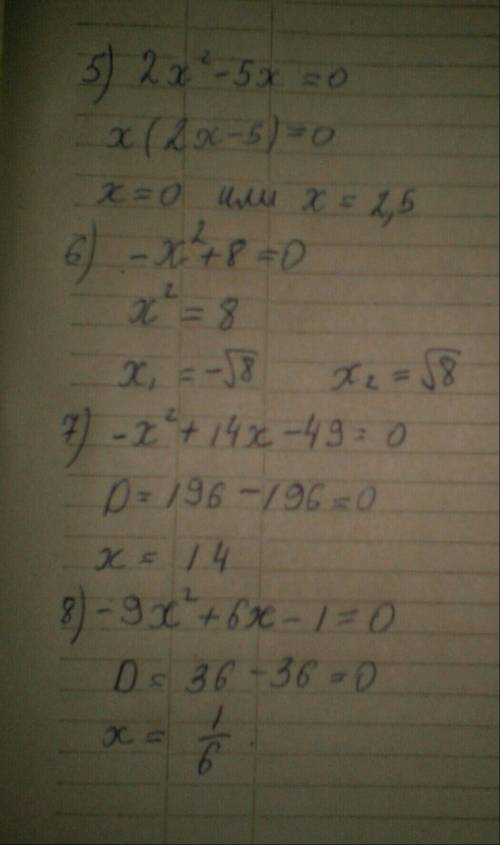 5) 2x² - 5x = 0
x(2x-5) = 0
x = 0 или x = 2,5
6) -x² + 8 = 0
x² = 8
x₁ = -√8 x₂ = √8
7) -x² + 14x - 49 = 0
D = 196 - 196 = 0
x = 14
8) -9x² + 6x - 1 = 0
D = 36 - 36 = 0
x = 1/6